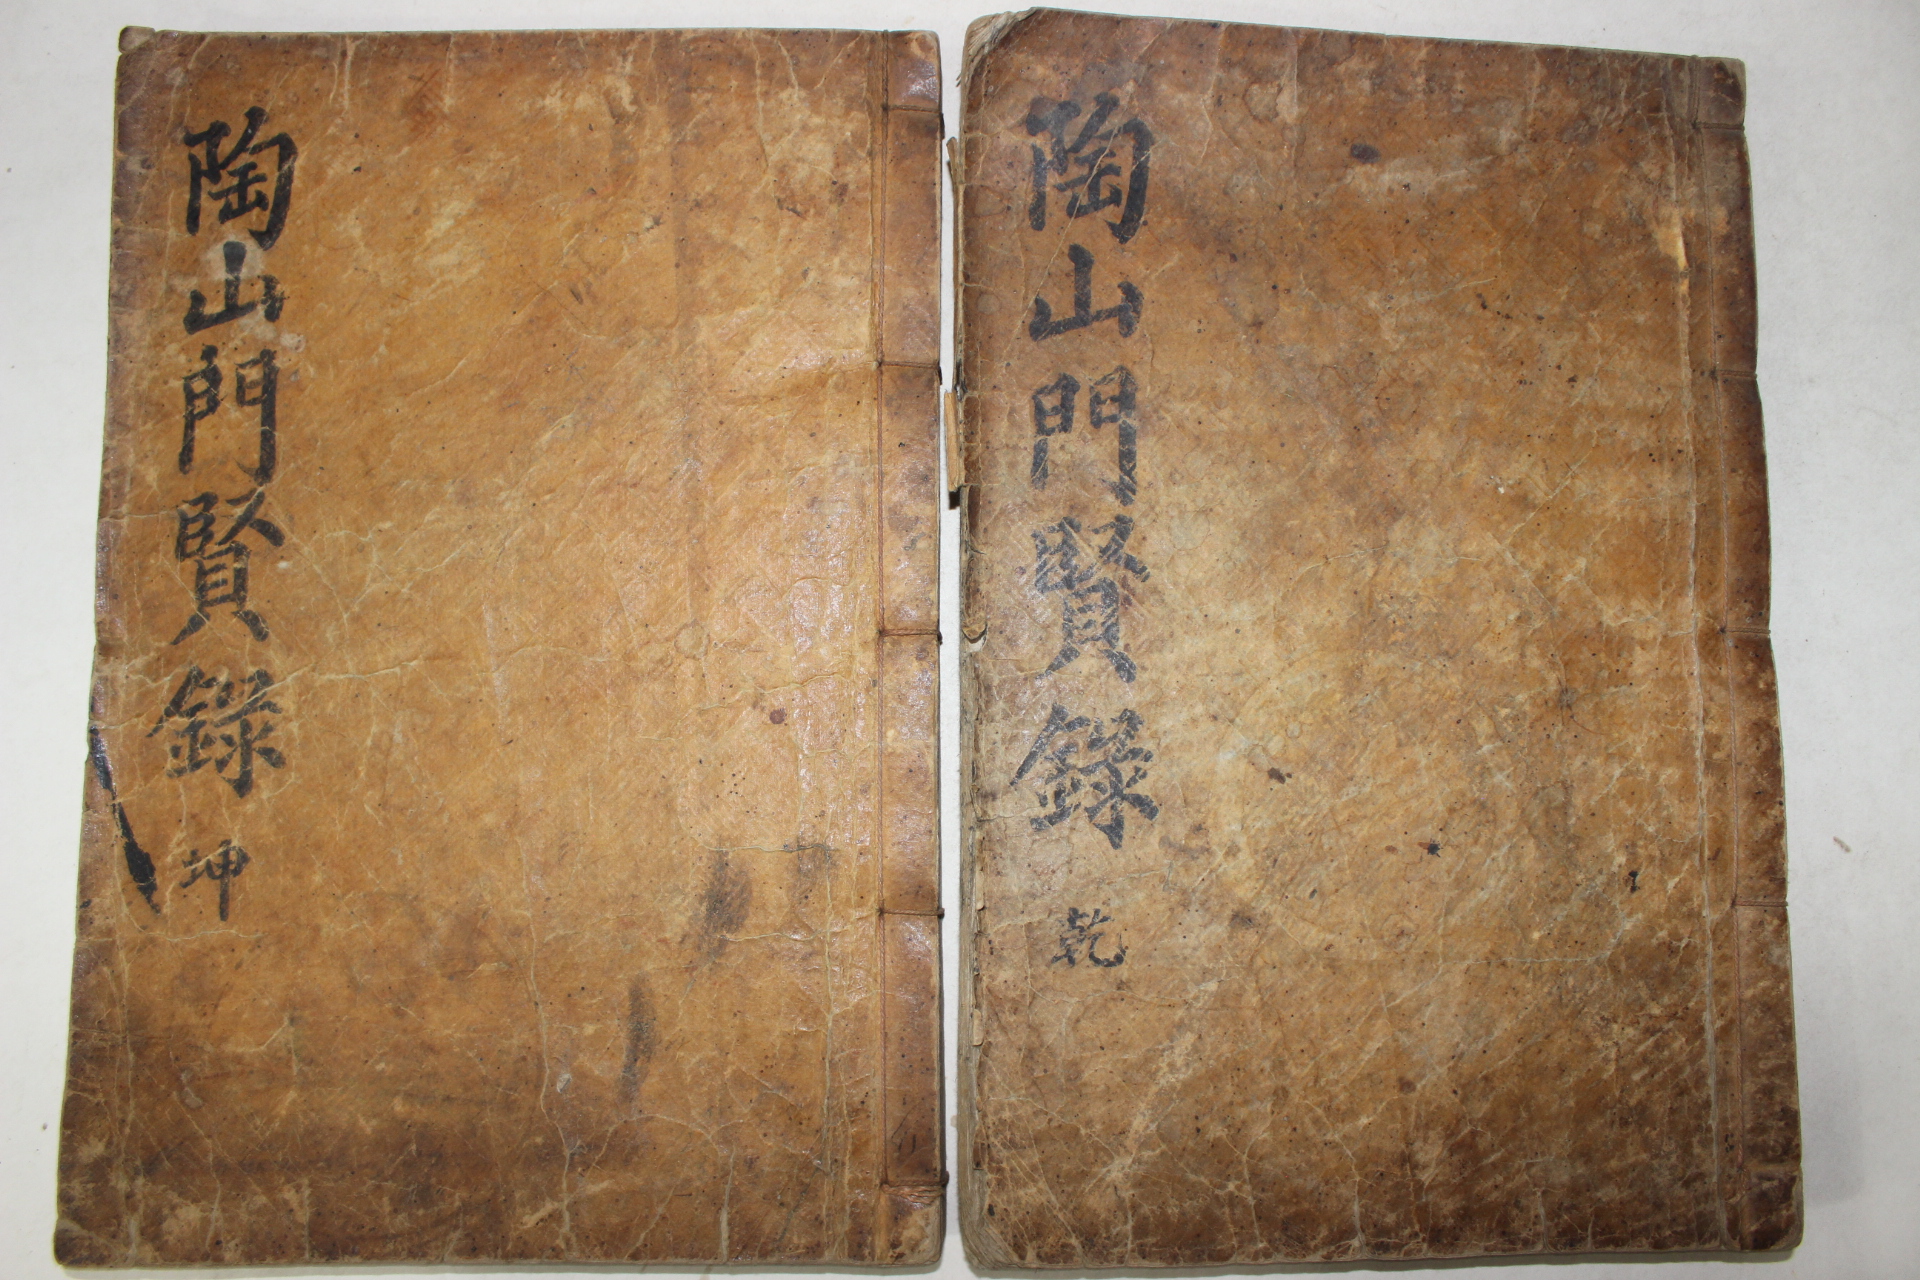 陶山門賢錄 乾
陶山門賢錄 坤